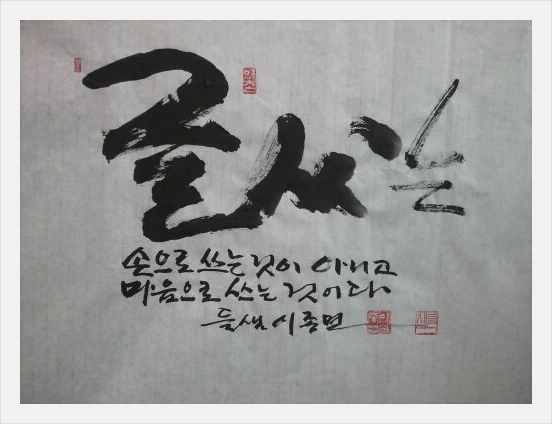 글씨는
손으로 쓰는 것이 아니고
마음으로 쓰는 것이다
들샘